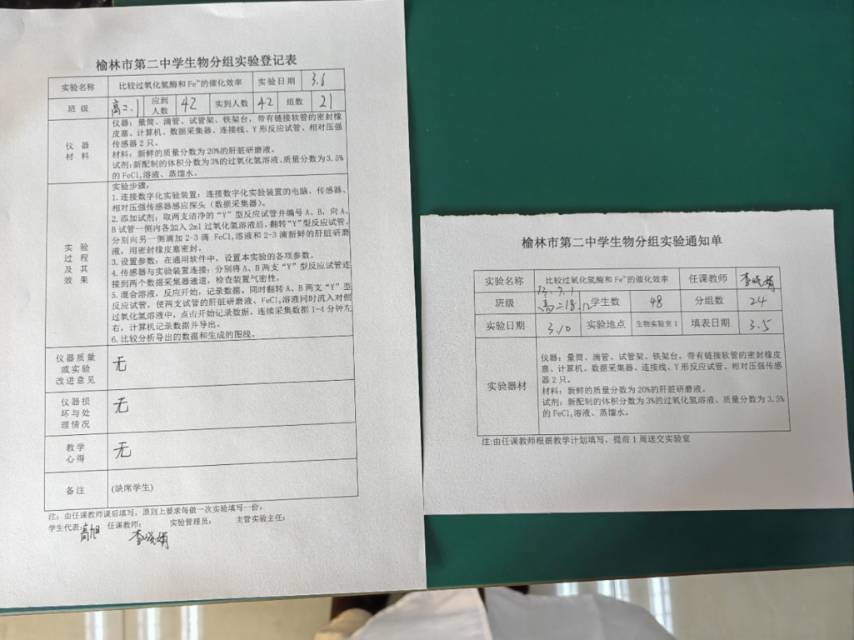 榆林市第二中学生物分组实验登记表
实验名称 比较过氧化氢酶和Fe³⁺的催化效率 实验日期 3.6
班级 高二.1 应到人数 42 实到人数 42 组数 21
仪器材料
仪器：量筒、滴管、试管架、铁架台，带有链接软管的密封橡
皮塞、计算机、数据采集器、连接线、Y形反应试管、相对压强
传感器2只。
材料：新鲜的质量分数为20%的肝脏研磨液。
试剂：新配制的体积分数为3%的过氧化氢溶液、质量分数为3.5%
的FeCl₃溶液、蒸馏水。
实验过程及其效果
实验步骤：
1.连接数字化实验装置：连接数字化实验装置的电脑、传感器、
相对压强传感器感应探头（数据采集器）。
2.添加试剂：取两支洁净的“Y”型反应试管并编号A、B，向A、
B试管一侧内各加入2ml过氧化氢溶液后，翻转“Y”型反应试管，
分别向另一侧滴加2-3滴FeCl₃溶液和2-3滴新鲜的肝脏研磨
液，用密封橡皮塞密封。
3.设置参数：在通用软件中，设置本实验的各项参数。
4.传感器与实验装置连接：分别将A、B两支“Y”型反应试管连
接到两个数据采集器通道，检查装置气密性。
5.混合溶液，反应开始，记录数据。同时翻转A、B两支“Y”型
反应试管，使两支试管的肝脏研磨液、FeCl₃溶液同时流入对侧
过氧化氢溶液中，点击开始记录数据。连续采集数据1-4分钟左
右，计算机记录数据并导出。
6.比较分析导出的数据和生成的图线。
仪器质量或实验改进意见 无
仪器损坏与处理情况 无
教学心得 无
备注 (缺席学生)
注：由任课教师课后填写，原则上要求每做一次实验填写一份。
学生代表： 任课教师： 实验管理员： 主管实验主任：
榆林市第二中学生物分组实验通知单
实验名称 比较过氧化氢酶和Fe³⁺的催化效率 任课教师
班级 学生数 48 分组数 24
实验日期 3.10 实验地点 生物实验室1 填表日期 3.5
实验器材
仪器：量筒、滴管、试管架、铁架台，带有链接软管的密封橡皮
塞、计算机、数据采集器、连接线、Y形反应试管、相对压强传感
器2只。
材料：新鲜的质量分数为20%的肝脏研磨液。
试剂：新配制的体积分数为3%的过氧化氢溶液、质量分数为3.5%
的FeCl₃溶液、蒸馏水。
注:由任课教师根据教学计划填写，提前1周送交实验室